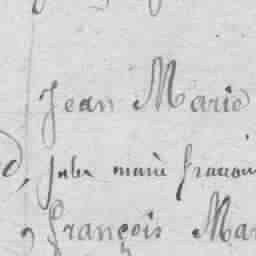 Jean Marie
Jules marie françoi
françois Mar